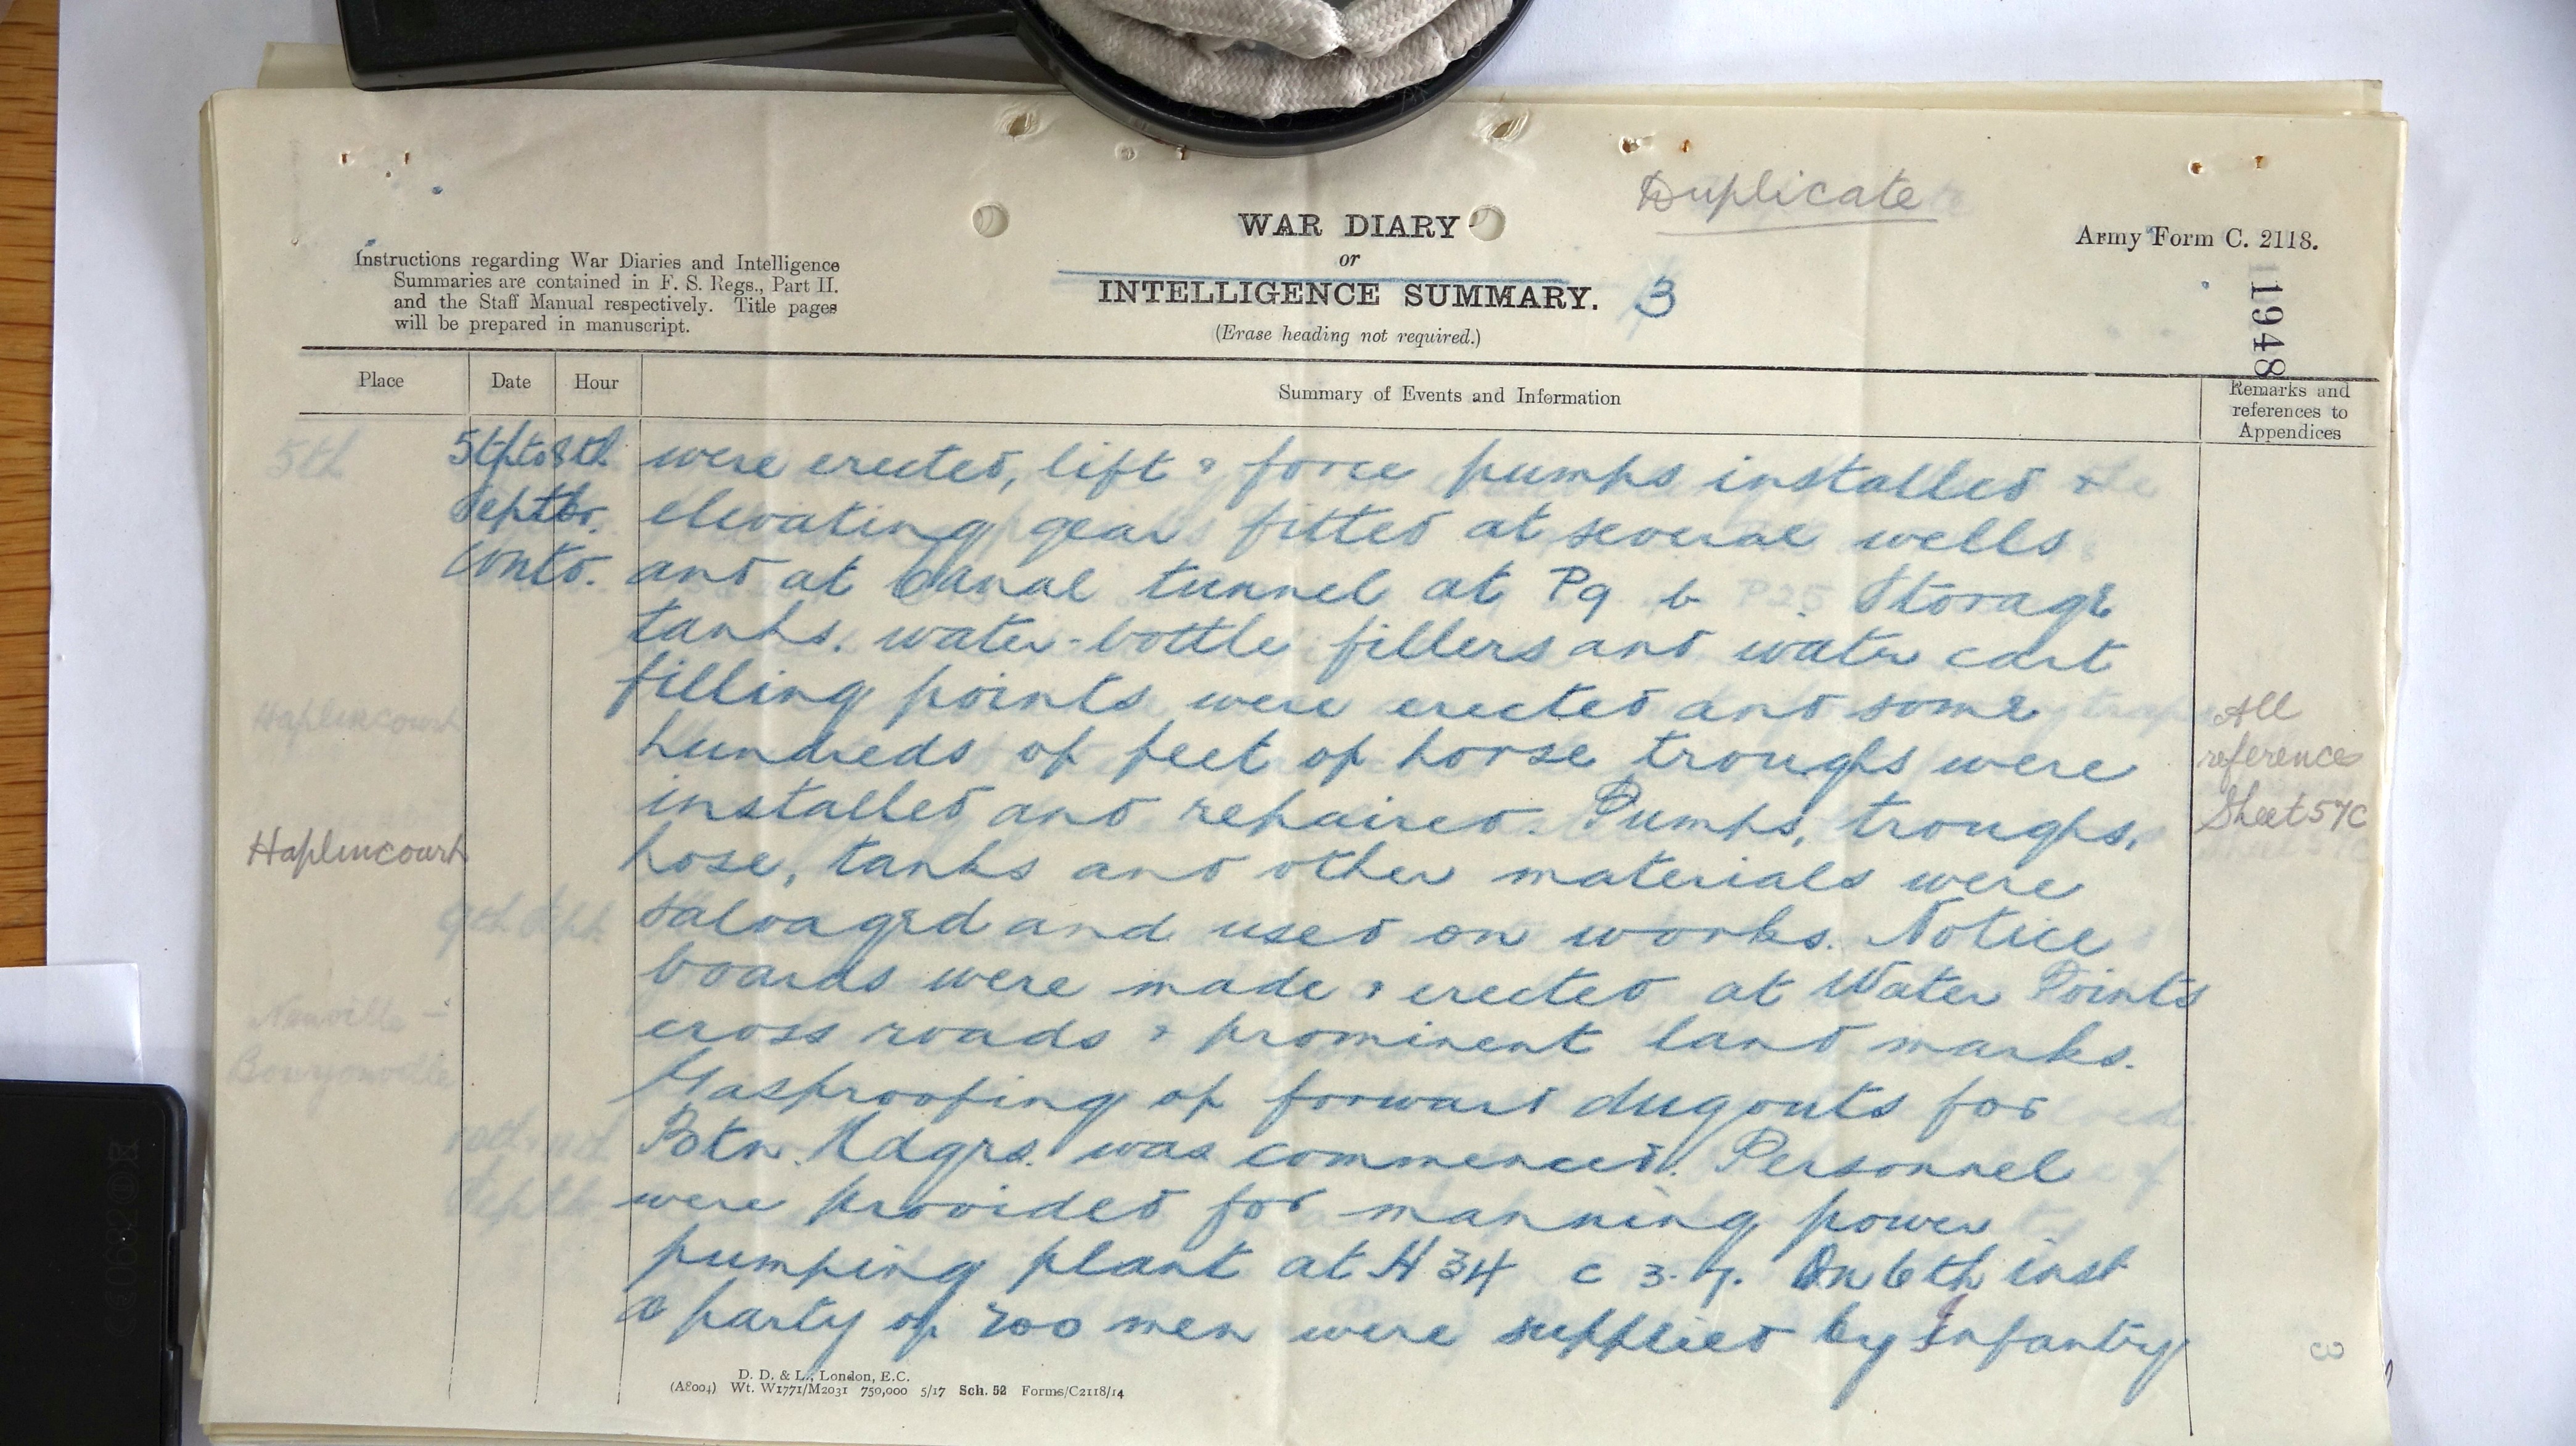 Duplicate
WAR DIARY
or
INTELLIGENCE SUMMARY. 3
(Erase heading not required.)
Army Form C. 2118.
11948
Instructions regarding War Diaries and Intelligence
Summaries are contained in F. S. Regs., Part II.
and the Staff Manual respectively. Title pages
will be prepared in manuscript.
Place Date Hour Summary of Events and Information Remarks and
references to
Appendices
5th 5th to 8th were erected, lift & force pumps installed &
Septbr. elevating gear fitted at several wells
contd. and at Canal tunnel at P9 b P25. Storage
tanks, water-bottle fillers and water cart
filling points were erected and some
hundreds of feet of horse troughs were
installed and repaired. Pumps, troughs,
hose, tanks and other materials were
salvaged and used on works. Notice
boards were made & erected at Water Points
cross roads & prominent land marks.
Gasproofing of forward dugouts for
Botn. Hdqrs. was commenced. Personnel
were provided for manning power
pumping plant at H 34 c 3.7. On 6th inst
a party of 200 men were supplied by Infantry
Haplincourt
Haplincourt
9th Sept.
Neuville -
Bourjonval
Septbr.
All
reference
Sheet 57C
3
D. D. & L., London, E.C.
(A8004) Wt. W1771/M2031 750,000 5/17 Sch. 52 Forms/C2118/14